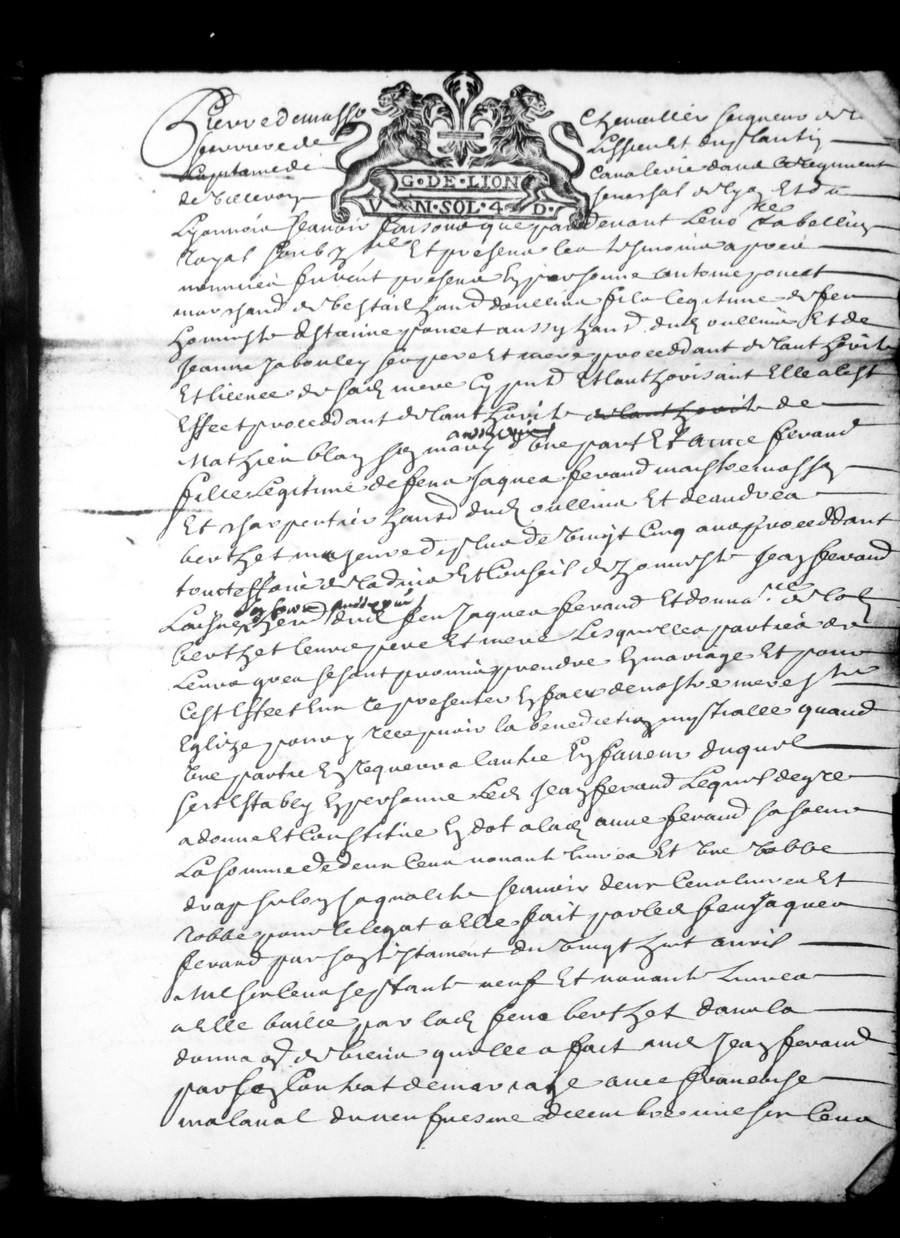 Pierre de masso Chevallier seigneur de
G·DE·LION
V N·SOL·4·D·
ferriere de Lissieu et du plantin
Capitaine de Cavalerie dans le regiment
de villeroy senechal de lyon et du
Lyonnois scavoir faisons que pardevant Le no.re Tabellion
royal soubz.né Et presens les tesmoins apres
nommes furent presens en personne antoine poncet
marchand de bestail hand doullins fils legitime de feu
honneste Estaine poncet aussy hand. dud oullins Et de
Jeanne Jabouley ses pere Et mere procedant de lauthorite
Et licence de sad mere cy pntd Et lauthorisant Elle a cest
Effect procedant de lauthorite de lauthorite de
Mathieu blay son mary authorise d'une part Et anne ferand
fille Legitime de feu Jaques ferand maistre masson
Et charpentier hand dud oullins Et de andrea
berthet majeure de plus de vingt Cinq ans procedant
touctesfois de ladvis Et Conseil de honneste Jean ferand
Laisne son frere dud feu Jaques ferand Et donna.re de lad
berthet leurs pere Et mere Lesquelles parties de
Leurs gres se sont promis prendre en mariage Et pour
Cest Effect Eux se presenter En face de nostre mere ste
Eglize pour y recepvoir la benediction nuptialle quand
Une partie En requerra lautre En faveur duquel
sest Estably En personne Led Jean ferand Lequel de gre
a donne Et Constitue En dot a lad anne ferand sa soeur
La somme de deux Cens nonante livres Et Une robbe
drap selon sa qualite scavoir deux Cens livres Et
robbe pour le legat a elle fait par led feu Jaques
ferand par son testament du vingt huit avril
Mil six Cens septante neuf Et nonante Livres
a Elle baillee par lad feue berthet dans la
donna.on de biens quelle a fait aud Jean ferand
par son Contrat de mariage avec francoise
malaval du neufviesme decembre mil six Cens